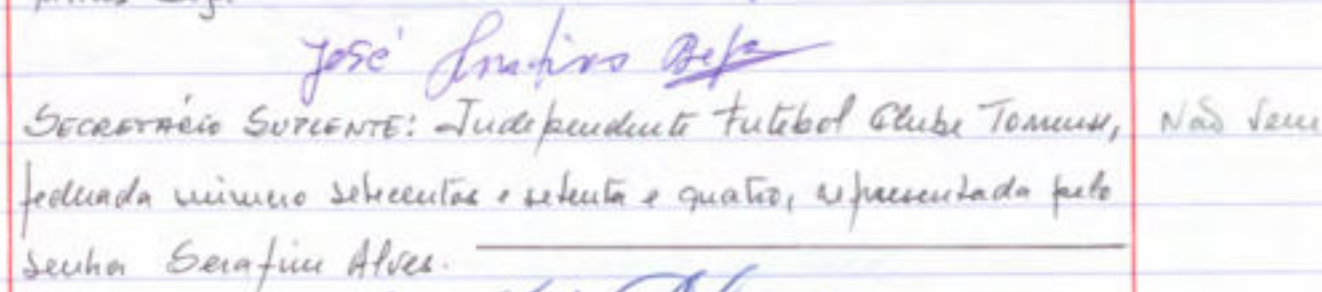 José
SECRETÁRIO SUPLENTE: Independente Futebol Clube Tomense, Não
federada número setecentos e setenta e quatro, representada pelo
senhor Serafim Alves.